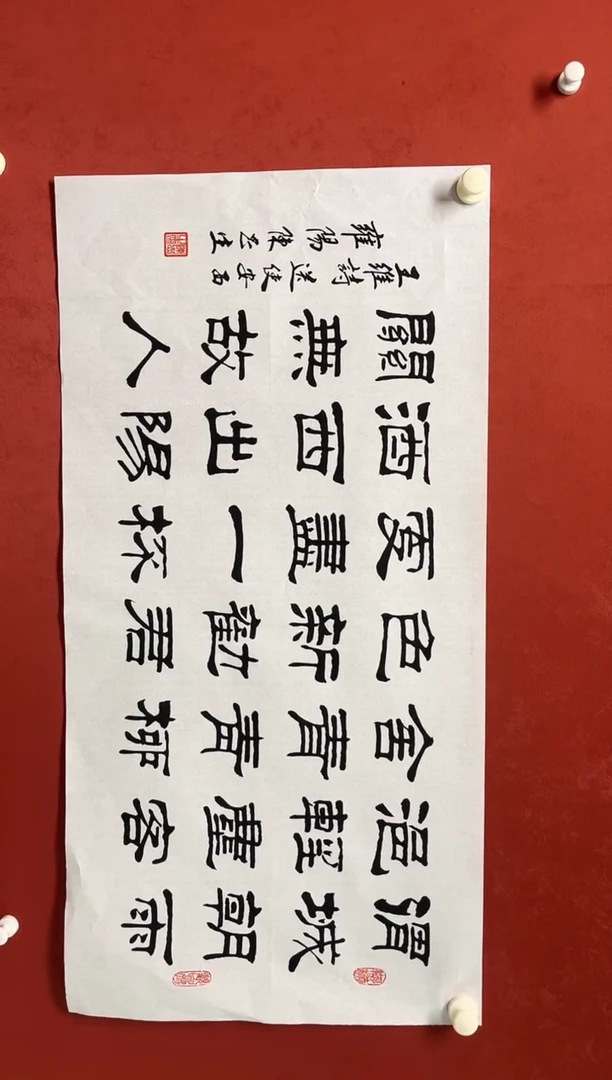 渭城朝雨
浥輕塵客
舍青青柳
色新勸君
更盡一杯
酒西出陽
關無故人
王維詩送使安西
雍陽陳生